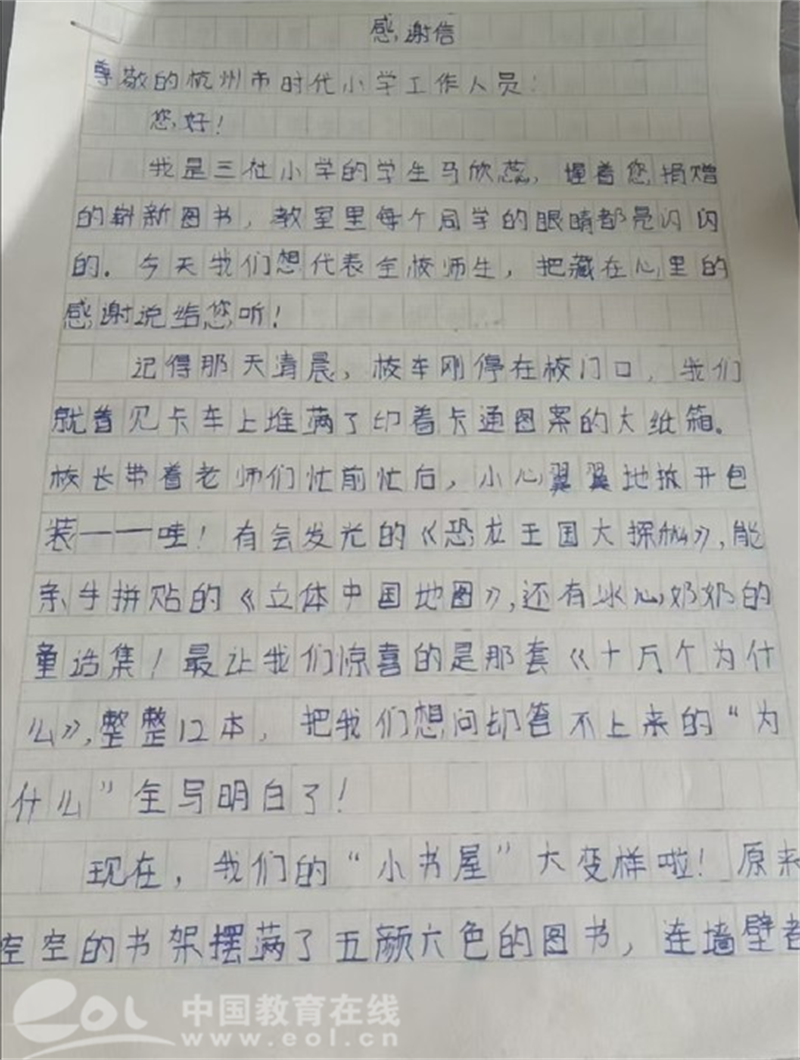 感谢信
尊敬的杭州市时代小学工作人员：
您好！
我是三社小学的学生马欣蕊，握着您捐赠
的崭新图书，教室里每个同学的眼睛都是闪闪
的．今天我们想代表全校师生，把藏在心里的
感谢说给您听！
记得那天清晨，校车刚停在校门口，我们
就看见卡车上堆满了印着卡通图案的大纸箱。
校长带着老师们忙前忙后，小心翼翼地拆开包
装——哇！有会发光的《恐龙王国大探秘》，能
亲手拼贴的《立体中国地图》，还有冰心奶奶的
童话集！最让我们惊喜的是那套《十万个为什
么》，整整12本，把我们想问却答不上来的“为
什么”全写明白了！
现在，我们的“小书屋”大变样啦！原来
空空的书架摆满了五颜六色的图书，连墙壁都
eol 中国教育在线
www.eol.cn